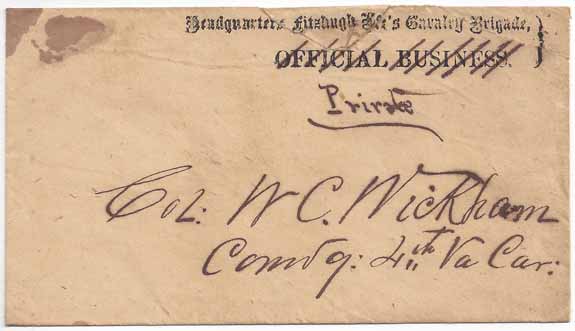 Headquarters Fitzhugh Lee's Cavalry Brigade,
OFFICIAL BUSINESS.
Private
Col: W C. Wickham
Comdg: 4th Va Cav: